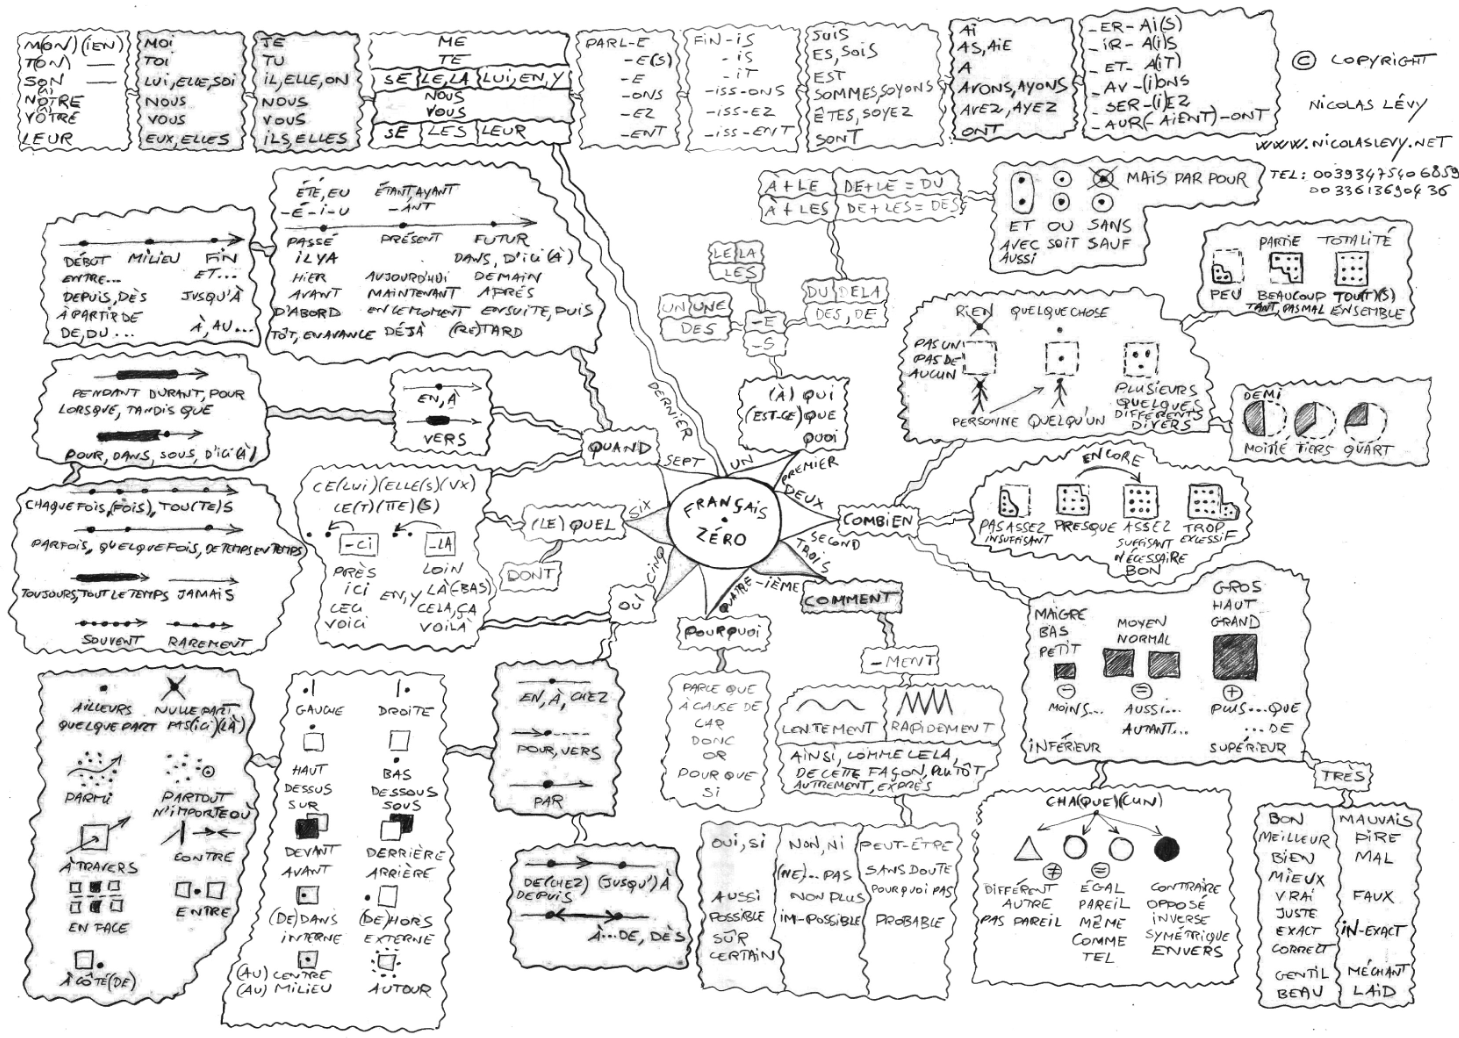 M(ON)(IEN)
T(ON)
SON
NOTRE
VOTRE
LEUR
MOI
TOI
LUI, ELLE, SOI
NOUS
VOUS
EUX, ELLES
JE
TU
IL, ELLE, ON
NOUS
VOUS
ILS, ELLES
ME
TE
SE LE, LA LUI, EN, Y
NOUS
VOUS
SE LES LEUR
PARL-E
-E(S)
-E
-ONS
-EZ
-ENT
FIN-IS
-IS
-IT
-ISS-ONS
-ISS-EZ
-ISS-ENT
SUIS
ES, SOIS
EST
SOMMES, SOYONS
ÊTES, SOYEZ
SONT
AI
AS, AIE
A
AVONS, AYONS
AVEZ, AYEZ
ONT
-ER-AI(S)
-IR-A(I)S
-ET-A(I)T
-AV-(I)ONS
-SER-(I)EZ
-AUR(-AIENT)-ONT
© COPYRIGHT
NICOLAS LÉVY
WWW.NICOLASLEVY.NET
TEL: 00393475406859
00336136904 36
ÉTÉ, EU ÉTANT, AYANT
-É-I-U -ANT
PASSÉ PRÉSENT FUTUR
IL Y A DANS, D'ICI (À)
HIER AUJOURD'HUI DEMAIN
AVANT MAINTENANT APRÈS
D'ABORD EN CE MOMENT ENSUITE, PUIS
TÔT, EN AVANCE DÉJÀ (RE)TARD
DÉBUT MILIEU FIN
ENTRE... ET...
DEPUIS, DÈS JUSQU'À
À PARTIR DE
DE, DU... À, AU...
PENDANT DURANT, POUR
LORSQUE, TANDIS QUE
POUR, DANS, SOUS, D'ICI (À)
EN, À
VERS
CHAQUE FOIS, (FOIS), TOU(TE)S
PARFOIS, QUELQUEFOIS, DE TEMPS EN TEMPS
TOUJOURS, TOUT LE TEMPS JAMAIS
SOUVENT RAREMENT
CE(LUI)(ELLE(S)(UX)
CE(T)(TTE)(S)
-CI -LA
PRÈS LOIN
ICI EN, Y LÀ(-BAS)
CECI CELA, ÇA
VOICI VOILÀ
QUAND
(LE) QUEL
DONT
OÙ
FRANÇAIS
ZÉRO
UN
PREMIER
DEUX
SECOND
TROIS
-IÈME
QUATRE
CINQ
SIX
SEPT
DERNIER
À + LE DE + LE = DU
À + LES DE + LES = DES
LE LA
LES
UN UNE
DES
DU DE LA
DES, DE
-E
-S
(À) QUI
(EST-CE) QUE
QUOI
MAIS PAR POUR
ET OU SANS
AVEC SOIT SAUF
AUSSI
PARTIE TOTALITÉ
PEU BEAUCOUP TOU(T)(S)
TANT, PAS MAL ENSEMBLE
RIEN QUELQUE CHOSE
PAS UN
PAS DE
AUCUN
PERSONNE QUELQU'UN
PLUSIEURS
QUELQUES
DIFFÉRENTS
DIVERS
DEMI
MOITIÉ TIERS QUART
COMBIEN
ENCORE
PAS ASSEZ PRESQUE ASSEZ TROP
INSUFFISANT SUFFISANT EXCESSIF
NÉCESSAIRE
BON
MAIGRE
BAS
PETIT
MOYEN
NORMAL
GROS
HAUT
GRAND
- = +
MOINS... AUSSI... PLUS...QUE
AUTANT... ...DE
INFÉRIEUR SUPÉRIEUR
TRÈS
BON MAUVAIS
MEILLEUR PIRE
BIEN MAL
MIEUX
VRAI FAUX
JUSTE
EXACT IN-EXACT
CORRECT
GENTIL MÉCHANT
BEAU LAID
CHA(QUE)(CUN)
≠ =
DIFFÉRENT ÉGAL CONTRAIRE
AUTRE PAREIL OPPOSÉ
PAS PAREIL MÊME INVERSE
COMME SYMÉTRIQUE
TEL ENVERS
COMMENT
-MENT
LENTEMENT RAPIDEMENT
AINSI, COMME CELA,
DE CETTE FAÇON, PLUTÔT
AUTREMENT, EXPRÈS
OUI, SI NON, NI PEUT-ÊTRE
(NE)...PAS SANS DOUTE
AUSSI NON PLUS POURQUOI PAS
POSSIBLE IM-POSSIBLE PROBABLE
SÛR
CERTAIN
POURQUOI
PARCE QUE
À CAUSE DE
CAR
DONC
OR
POUR QUE
SI
EN, À, CHEZ
POUR, VERS
PAR
DE(CHEZ) (JUSQU')À
DEPUIS
À...DE, DÈS
GAUCHE DROITE
HAUT BAS
DESSUS DESSOUS
SUR SOUS
DEVANT DERRIÈRE
AVANT ARRIÈRE
(DE)DANS (DE)HORS
INTERNE EXTERNE
(AU) CENTRE
(AU) MILIEU AUTOUR
AILLEURS NULLE PART
QUELQUE PART PAS(ICI)(LÀ)
PARMI PARTOUT
N'IMPORTE OÙ
À TRAVERS CONTRE
EN FACE ENTRE
À CÔTÉ(DE)